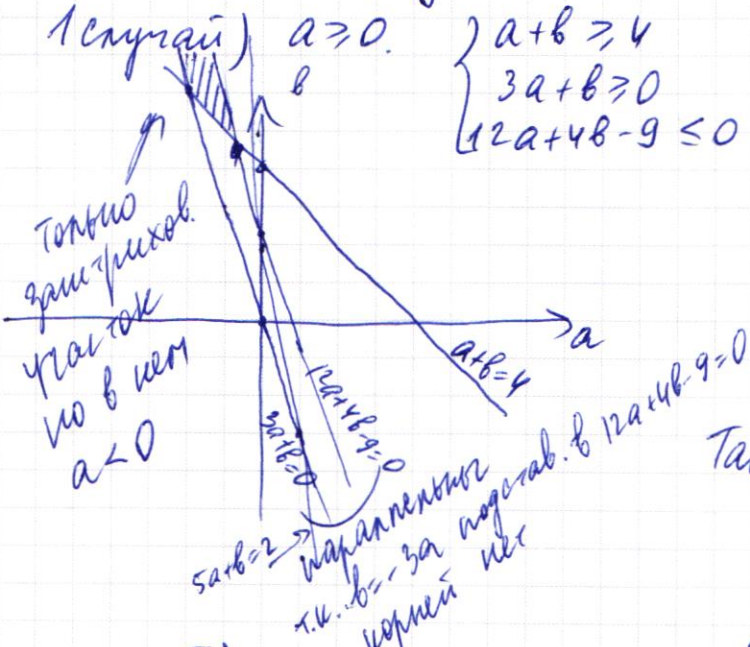 1 случай) a ≥ 0.
{ a+b ≥ 4
3a+b ≥ 0
12a+4b-9 ≤ 0
в
только
заштрихов.
участок
но в нем
a < 0
a
a+b=4
12a+4b-9=0
3a+b=0
5a+b=2
параллельны
т.к. b=-3a подстав. в 12a+4b-9=0
корней нет
Та